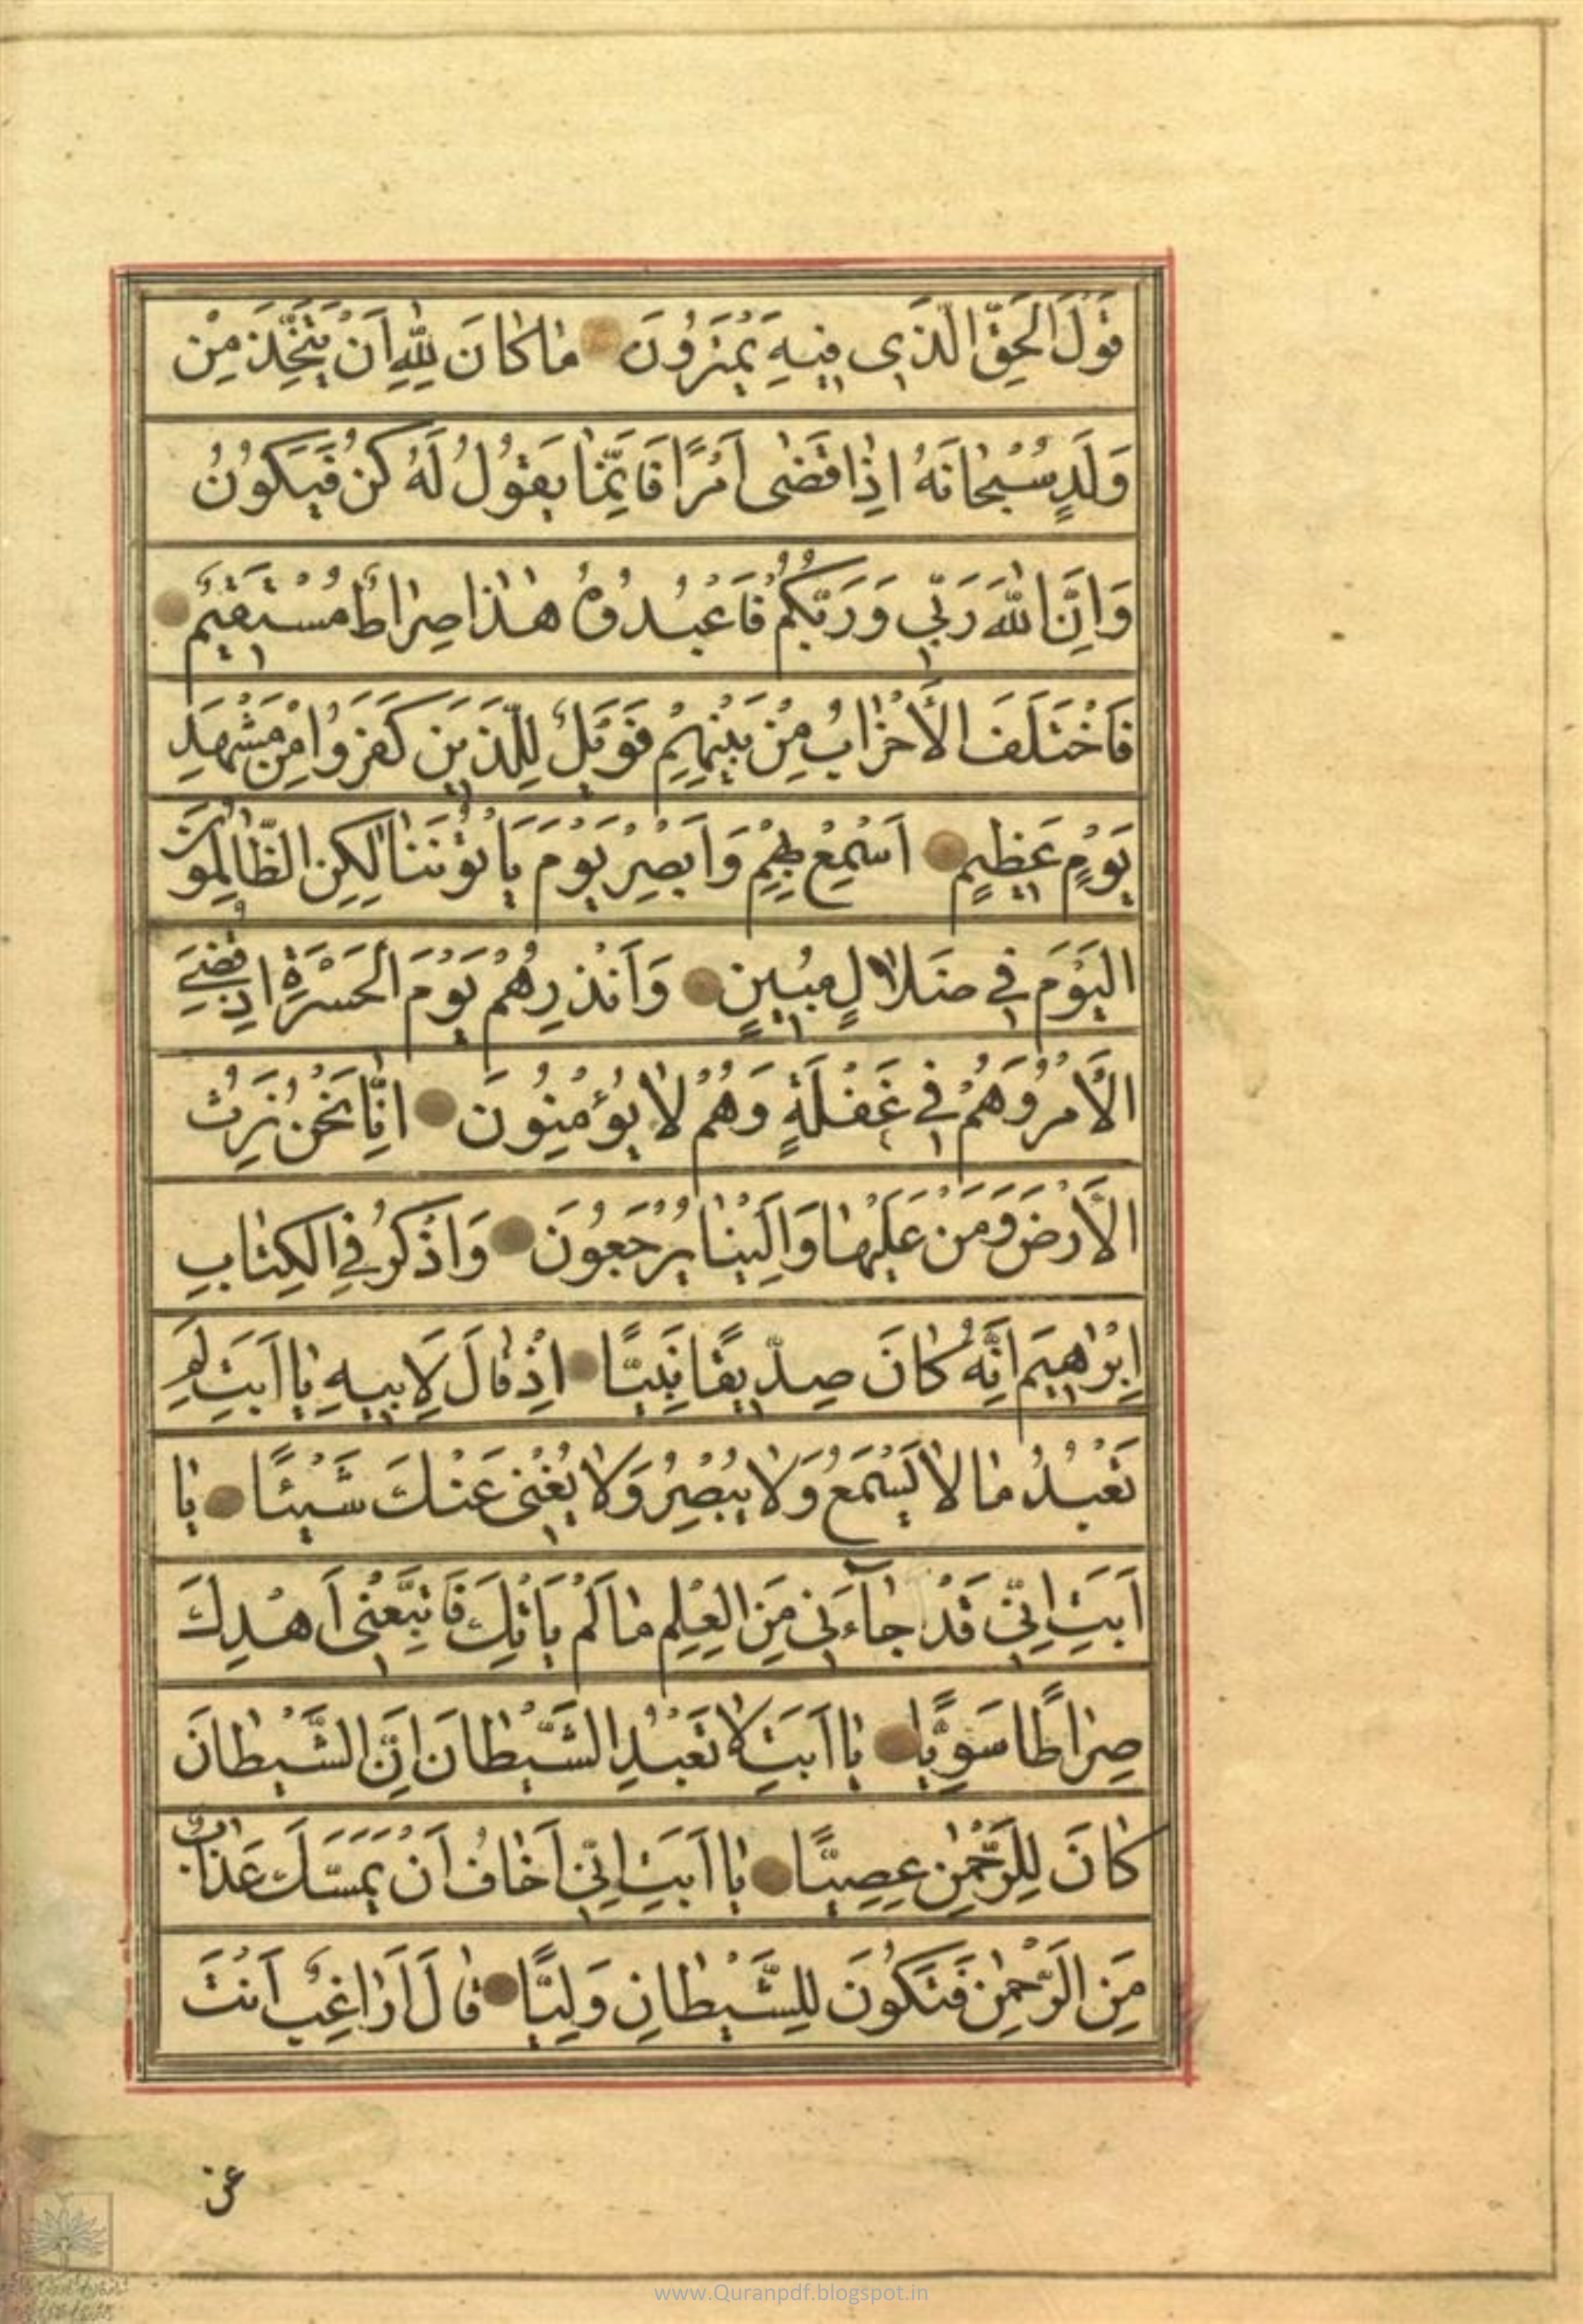 قَوْلَ الْحَقِّ الَّذِى فِيهِ يَمْتَرُونَ مٰا كٰانَ لِلّٰهِ اَنْ يَتَّخِذَ مِنْ
وَلَدٍ سُبْحٰانَهُ اِذٰا قَضٰى اَمْرًا فَاِنَّمٰا يَقُولُ لَهُ كُنْ فَيَكُونُ
وَاِنَّ اللّٰهَ رَبِّى وَرَبُّكُمْ فَاعْبُدُوهُ هٰذٰا صِرٰاطٌ مُسْتَقِيمٌ
فَاخْتَلَفَ الْاَحْزٰابُ مِنْ بَيْنِهِمْ فَوَيْلٌ لِلَّذِينَ كَفَرُوا مِنْ مَشْهَدِ
يَوْمٍ عَظِيمٍ اَسْمِعْ بِهِمْ وَاَبْصِرْ يَوْمَ يَاْتُونَنٰا لٰكِنِ الظّٰالِمُونَ
الْيَوْمَ فِى ضَلٰالٍ مُبِينٍ وَاَنْذِرْهُمْ يَوْمَ الْحَسْرَةِ اِذْ قُضِىَ
الْاَمْرُ وَهُمْ فِى غَفْلَةٍ وَهُمْ لٰا يُؤْمِنُونَ اِنّٰا نَحْنُ نَرِثُ
الْاَرْضَ وَمَنْ عَلَيْهٰا وَاِلَيْنٰا يُرْجَعُونَ وَاذْكُرْ فِى الْكِتٰابِ
اِبْرٰاهِيمَ اِنَّهُ كٰانَ صِدِّيقًا نَبِيًّا اِذْ قٰالَ لِاَبِيهِ يٰا اَبَتِ لِمَ
تَعْبُدُ مٰا لٰا يَسْمَعُ وَلٰا يُبْصِرُ وَلٰا يُغْنِى عَنْكَ شَيْئًا يٰا
اَبَتِ اِنِّى قَدْ جٰاۤءَنِى مِنَ الْعِلْمِ مٰا لَمْ يَاْتِكَ فَاتَّبِعْنِى اَهْدِكَ
صِرٰاطًا سَوِيًّا يٰا اَبَتِ لٰا تَعْبُدِ الشَّيْطٰانَ اِنَّ الشَّيْطٰانَ
كٰانَ لِلرَّحْمٰنِ عَصِيًّا يٰا اَبَتِ اِنِّى اَخٰافُ اَنْ يَمَسَّكَ عَذٰابٌ
مِنَ الرَّحْمٰنِ فَتَكُونَ لِلشَّيْطٰانِ وَلِيًّا قٰالَ اَرٰاغِبٌ اَنْتَ
عن
www.Quranpdf.blogspot.in